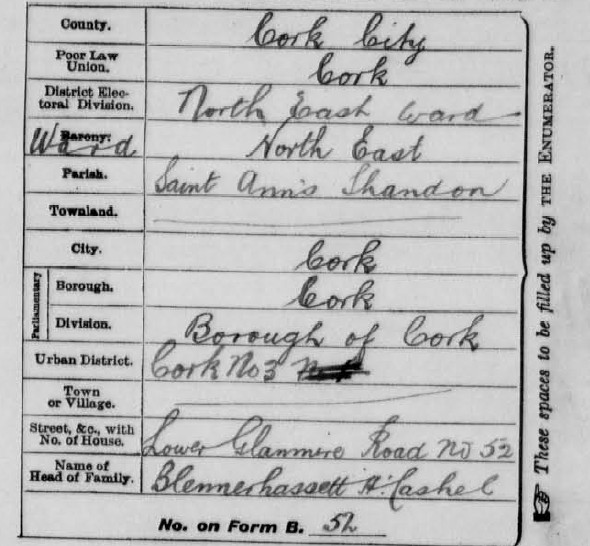 County. Cork City
Poor Law Union. Cork
District Electoral Division. North East Ward
Barony. Ward North East
Parish. Saint Ann's Shandon
Townland.
City. Cork
Parliamentary
Borough. Cork
Division. Borough of Cork
Urban District. Cork No 3
Town or Village.
Street, &c., with No. of House. Lower Glanmire Road No 52
Name of Head of Family. Blennerhassett H. Cashel
No. on Form B. 52
These spaces to be filled up by THE ENUMERATOR.